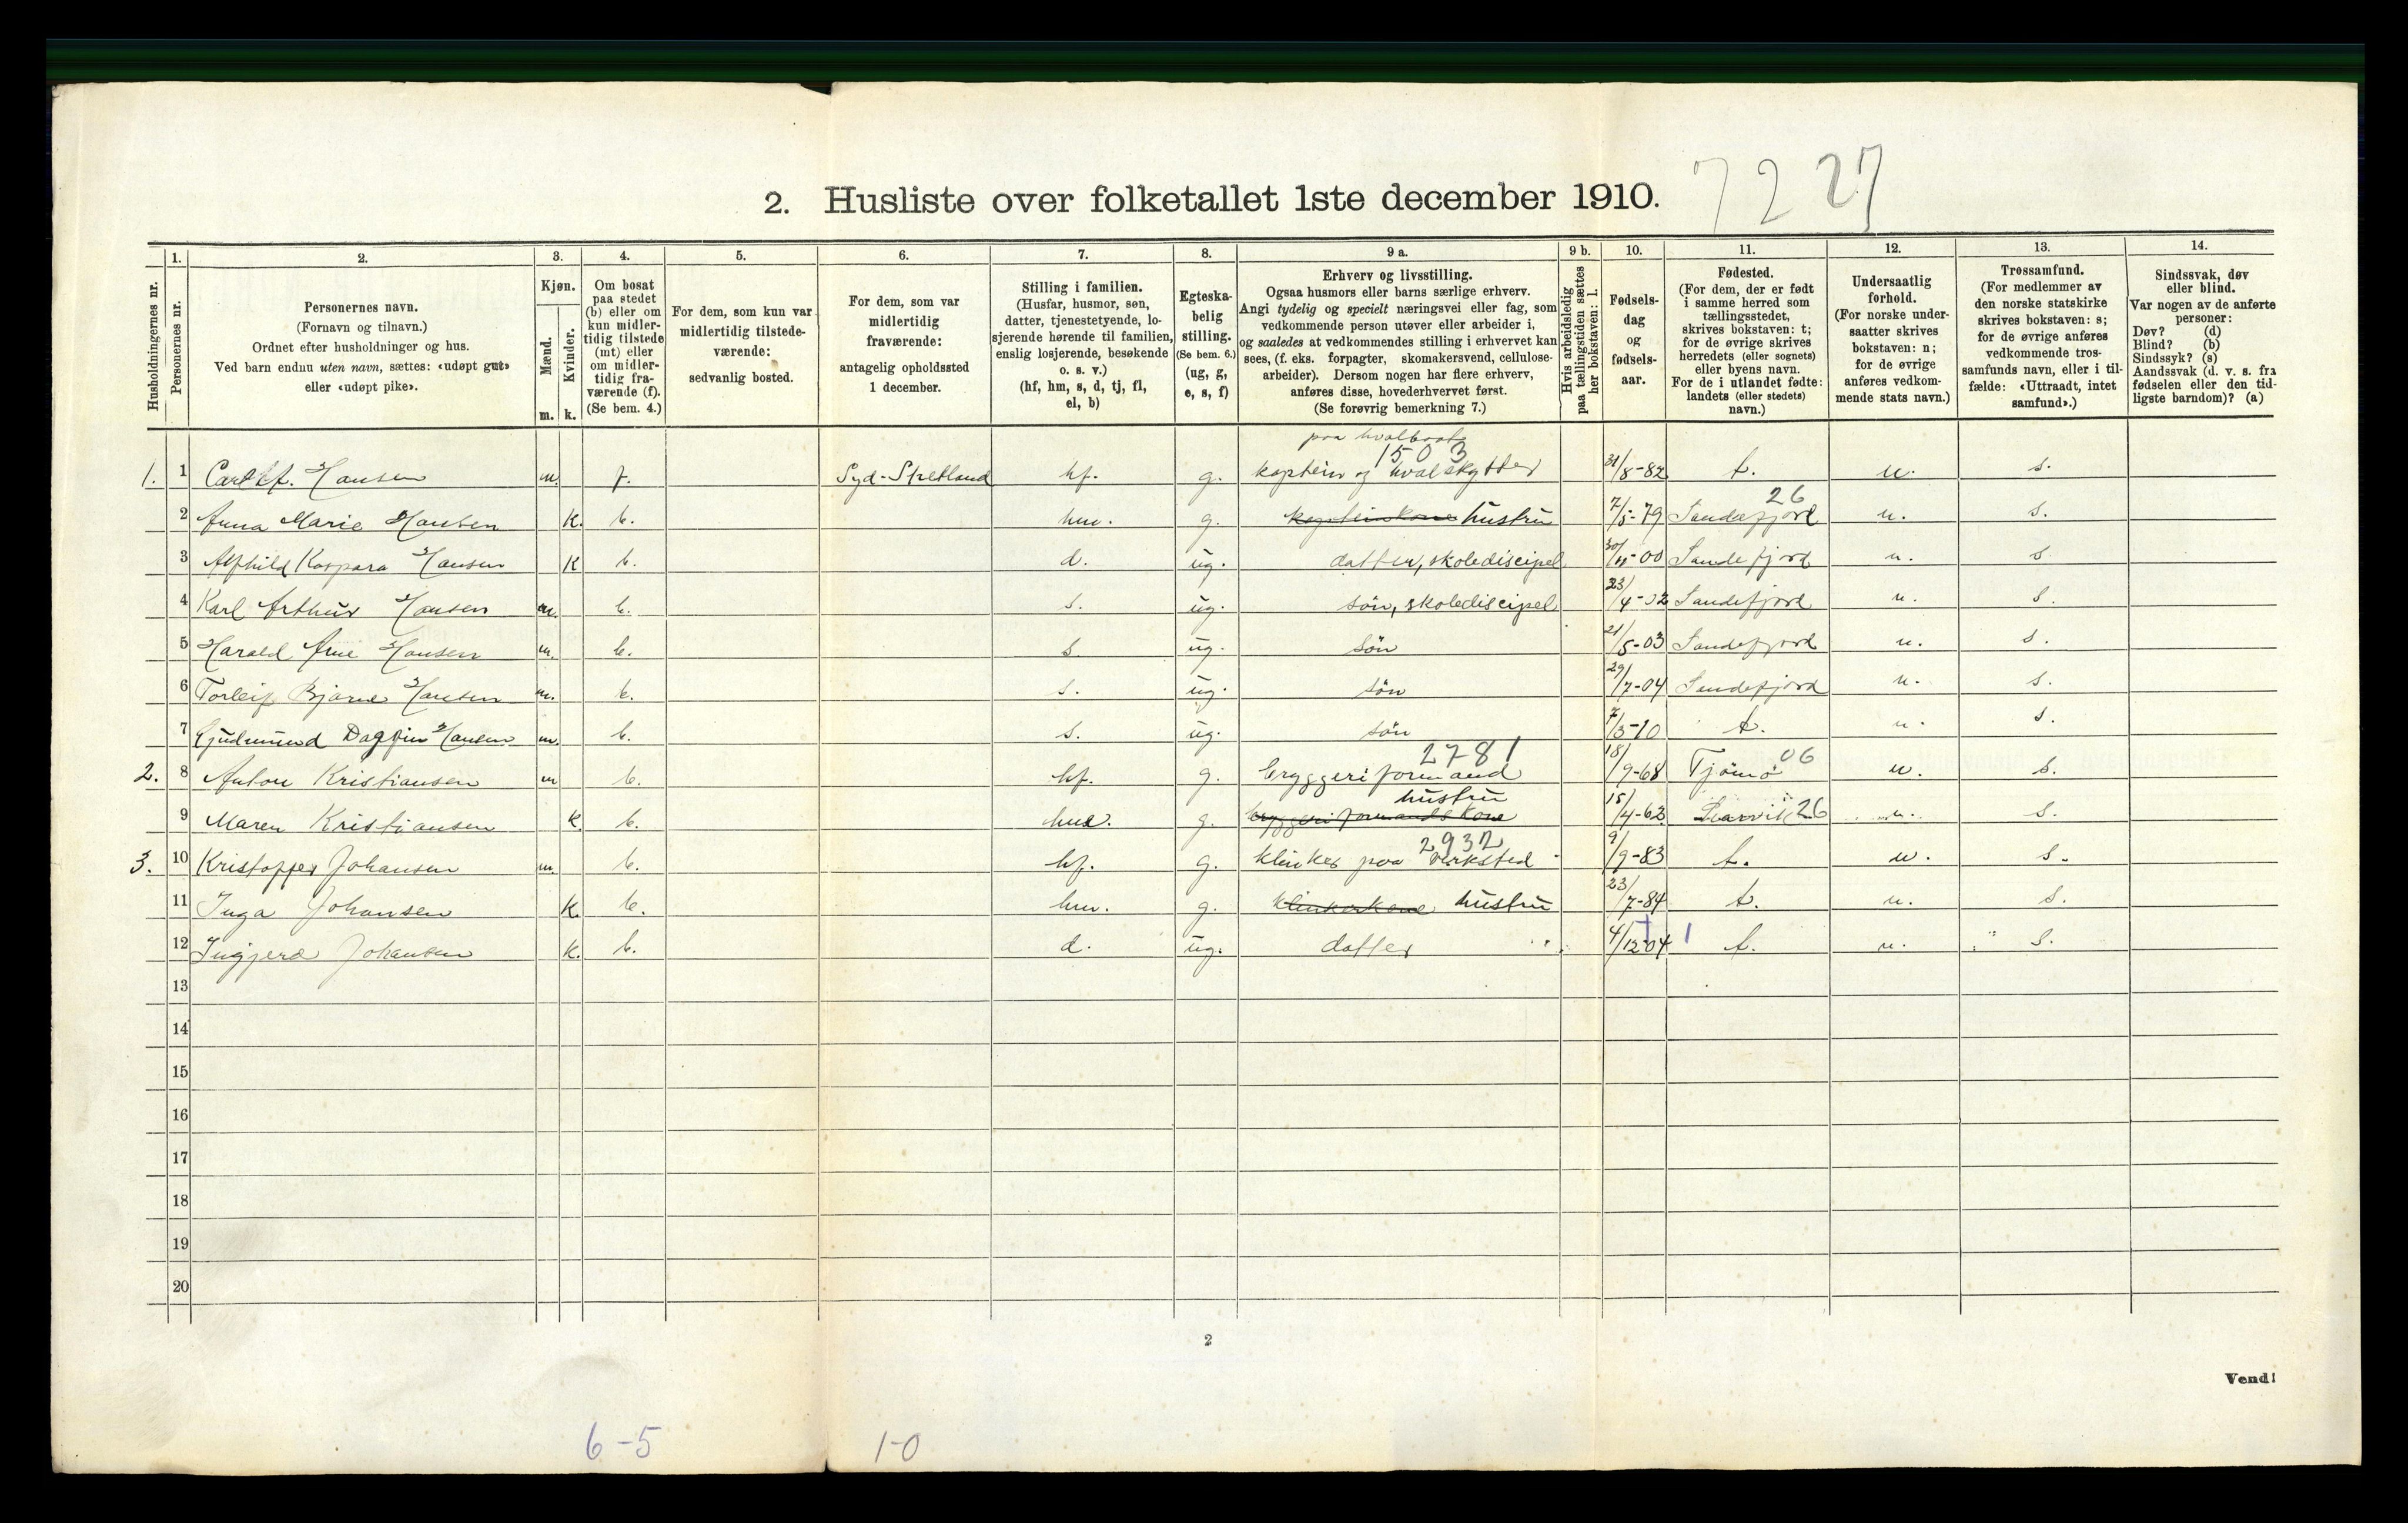 7 2 27
2. Husliste over folketallet 1ste december 1910.
Husholdningernes nr.
1.
Personernes nr.
2.
Personernes navn.
(Fornavn og tilnavn.)
Ordnet efter husholdninger og hus.
Ved barn endnu uten navn, sættes: «udøpt gut»
eller «udøpt pike».
3.
Kjøn.
Mænd.
m.
Kvinder.
k.
4.
Om bosat
paa stedet
(b) eller om
kun midler-
tidig tilstede
(mt) eller
om midler-
tidig fra-
værende (f).
(Se bem. 4.)
5.
For dem, som kun var
midlertidig tilstede-
værende:
sedvanlig bosted.
6.
For dem, som var
midlertidig
fraværende:
antagelig opholdssted
1 december.
7.
Stilling i familien.
(Husfar, husmor, søn,
datter, tjenestetyende, lo-
sjerende hørende til familien,
enslig losjerende, besøkende
o. s. v.)
(hf, hm, s, d, tj, fl,
el, b)
8.
Egteska-
belig
stilling.
(Se bem. 6.)
(ug, g,
e, s, f)
9 a.
Erhverv og livsstilling.
Ogsaa husmors eller barns særlige erhverv.
Angi tydelig og specielt næringsvei eller fag, som
vedkommende person utøver eller arbeider i,
og saaledes at vedkommendes stilling i erhvervet kan
sees, (f. eks. forpagter, skomakersvend, cellulose-
arbeider). Dersom nogen har flere erhverv,
anføres disse, hovederhvervet først.
(Se forøvrig bemerkning 7.)
9 b.
Hvis arbeidsledig
paa tællingstiden sættes
her bokstaven: l.
10.
Fødsels-
dag
og
fødsels-
aar.
11.
Fødested.
(For dem, der er født
i samme herred som
tællingsstedet,
skrives bokstaven: t;
for de øvrige skrives
herredets (eller sognets)
eller byens navn.
For de i utlandet fødte:
landets (eller stedets)
navn.)
12.
Undersaatlig
forhold.
(For norske under-
saatter skrives
bokstaven: n;
for de øvrige
anføres vedkom-
mende stats navn.)
13.
Trossamfund.
(For medlemmer av
den norske statskirke
skrives bokstaven: s;
for de øvrige anføres
vedkommende tros-
samfunds navn, eller i til-
fælde: «Uttraadt, intet
samfund».)
14.
Sindssvak, døv
eller blind.
Var nogen av de anførte
personer:
Døv? (d)
Blind? (b)
Sindssyk? (s)
Aandssvak (d. v. s. fra
fødselen eller den tid-
ligste barndom)? (a)
paa hvalbaat
1503
1. 1 Carl Hansen m. f. Syd-Shetland hf. g. kaptein og hvalskytter 31/8-82 t. n. s.
26
2 Anna Marie Hansen k. b. hm. g. kapteinskone hustru 7/5-79 Sandefjord n. s.
3 Alfhild Kaspara Hansen k b. d. ug. datter, skolediscipel -00 Sandefjord n. s.
4 Karl Arthur Hansen m. b. s. ug. sön, skolediscipel 23/4-02 Sandefjord n. s.
5 Harald Arne Hansen m. b. s. ug. sön 21/5-03 Sandefjord n. s.
6 Torleif Bjarne Hansen m. b. s. ug. sön 29/7-04 Sandefjord n. s.
7 Gudmund Dagfin Hansen m. b. s. ug. sön 7/3-10 t. n. s.
2781 06
2. 8 Anton Kristiansen m b. hf. g. bryggeriformand 18/9-68 Tjömö n. s.
hustru
9 Maren Kristiansen k. b. hm. g. bryggeriformandskone 15/4-62 Larvik 26 n. s.
2932
3. 10 Kristoffer Johansen m. b. hf. g. klinker paa verksted 9/9-83 t. n. s.
11 Inga Johansen k. b. hm. g. klinkerkone hustru 23/7-84 t. n. s.
12 Ingjerd Johansen k. b. d. ug. datter 4/12 04 t. n. s.
13
14
15
16
17
18
19
20
2
Vend!
6-5 1-0